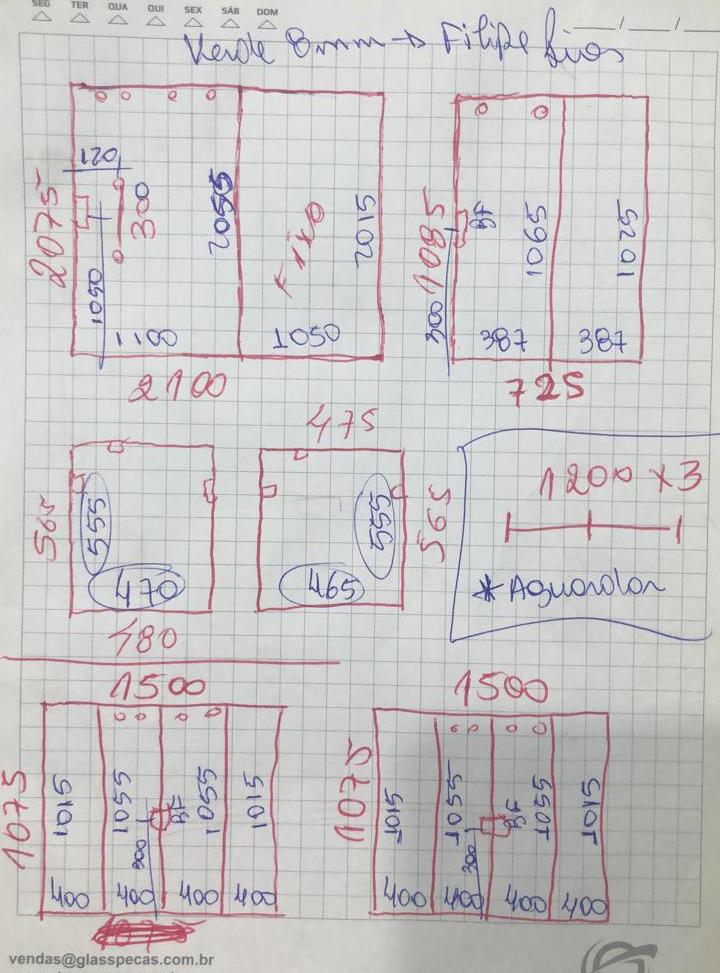 SEG TER QUA QUI SEX SÁB DOM
Verde 8mm → Filipe
120
2075
300
2055
Fixo
2015
1050
1100
1050
2100
1085
BF
1065
1025
300
387
387
725
565
555
470
480
475
555
565
465
1200 x 3
* Aguardar
1500
1075
1015
1055
BF
1055
1015
300
400
400
400
400
1500
1075
1015
1055
BF
1055
1015
300
400
400
400
400
vendas@glasspecas.com.br